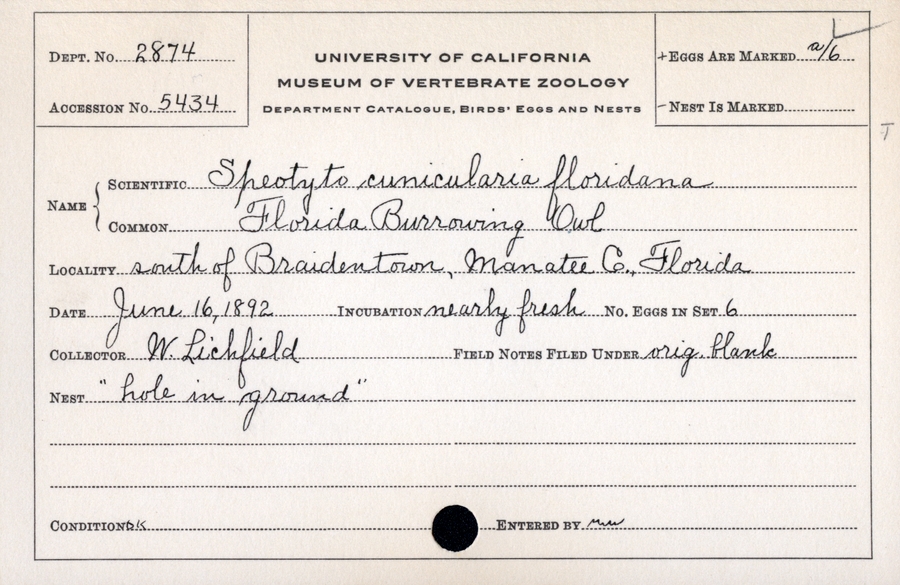 DEPT. No. 2874
ACCESSION No. 5434
UNIVERSITY OF CALIFORNIA
MUSEUM OF VERTEBRATE ZOOLOGY
DEPARTMENT CATALOGUE, BIRDS' EGGS AND NESTS
+EGGS ARE MARKED a/6
-NEST IS MARKED
T
NAME
SCIENTIFIC Speotyto cunicularia floridana
COMMON Florida Burrowing Owl
LOCALITY south of Braidentown, Manatee Co., Florida
DATE June 16, 1892 INCUBATION nearly fresh No. EGGS IN SET 6
COLLECTOR W. Lichfield FIELD NOTES FILED UNDER orig. blank
NEST "hole in ground"
CONDITION OK ENTERED BY